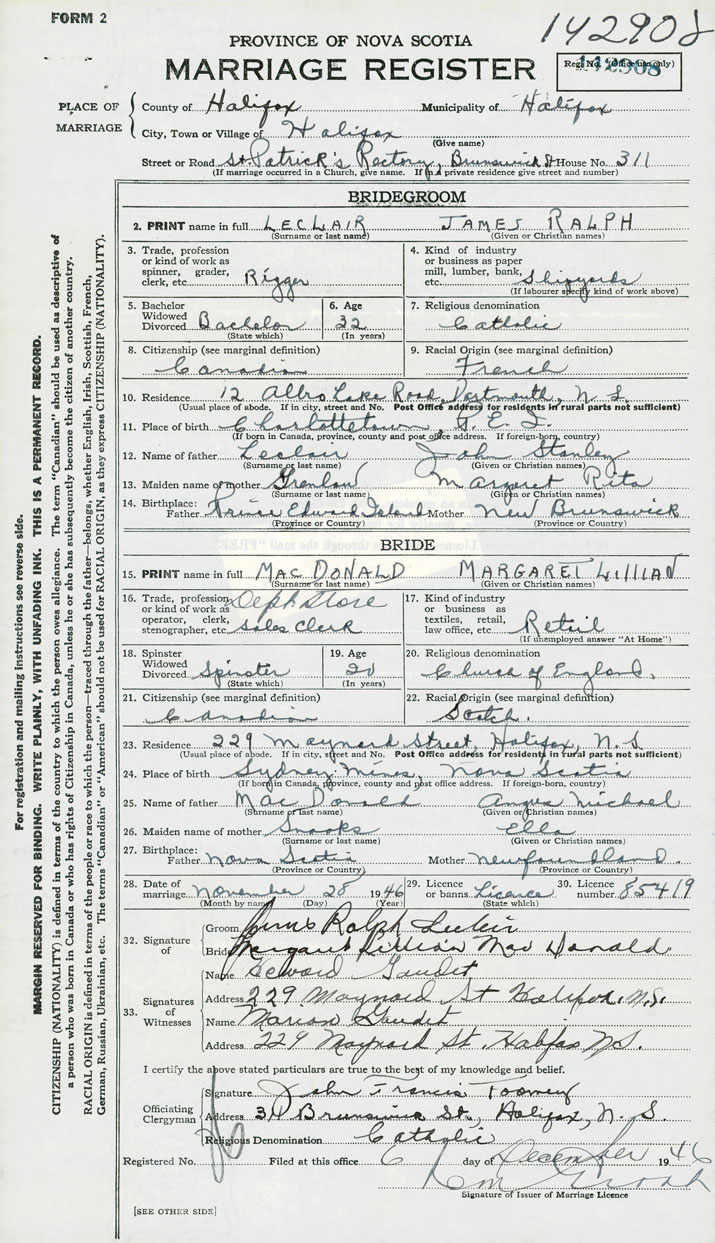 FORM 2
142908
PROVINCE OF NOVA SCOTIA
MARRIAGE REGISTER
Reg. No. (Office use only)
142908
PLACE OF MARRIAGE
County of Halifax Municipality of Halifax
City, Town or Village of Halifax
(Give name)
Street or Road St Patrick's Rectory, Brunswick St House No. 311
(If marriage occurred in a Church, give name. If in a private residence give street and number)
BRIDEGROOM
2. PRINT name in full LECLAIR JAMES RALPH
(Surname or last name) (Given or Christian names)
3. Trade, profession or kind of work as spinner, grader, clerk, etc. Rigger
4. Kind of industry or business as paper mill, lumber, bank, etc. Shipyards
(If labourer specify kind of work above)
5. Bachelor Widowed Divorced Bachelor
(State which)
6. Age 32
(In years)
7. Religious denomination
Catholic
8. Citizenship (see marginal definition)
Canadian
9. Racial Origin (see marginal definition)
French
10. Residence 12 Albro Lake Road, Dartmouth, N. S.
(Usual place of abode. If in city, street and No. Post Office address for residents in rural parts not sufficient)
11. Place of birth Charlottetown, P. E. I.
(If born in Canada, province, county and post office address. If foreign-born, country)
12. Name of father Leclair John Stanley
(Surname or last name) (Given or Christian names)
13. Maiden name of mother Margaret Rita
(Surname or last name) (Given or Christian names)
14. Birthplace:
Father Prince Edward Island Mother New Brunswick
(Province or Country) (Province or Country)
BRIDE
15. PRINT name in full MAC DONALD MARGARET LILLIAN
(Surname or last name) (Given or Christian names)
16. Trade, profession or kind of work as operator, clerk, stenographer, etc. Dept Store Sales Clerk
17. Kind of industry or business as textiles, retail, law office, etc. Retail
(If unemployed answer "At Home")
18. Spinster Widowed Divorced Spinster
(State which)
19. Age 20
(In years)
20. Religious denomination
Church of England.
21. Citizenship (see marginal definition)
Canadian
22. Racial Origin (see marginal definition)
Scotch.
23. Residence 229 Maynard Street, Halifax, N. S.
(Usual place of abode. If in city, street and No. Post Office address for residents in rural parts not sufficient)
24. Place of birth Sydney Mines, Nova Scotia
(If born in Canada, province, county and post office address. If foreign-born, country)
25. Name of father Mac Donald Angus Michael
(Surname or last name) (Given or Christian names)
26. Maiden name of mother Snooks Ella
(Surname or last name) (Given or Christian names)
27. Birthplace:
Father Nova Scotia Mother Newfoundland.
(Province or Country) (Province or Country)
28. Date of marriage November 28 1946
(Month by name) (Day) (Year)
29. Licence or banns Licence
(State which)
30. Licence number 85419
32. Signature of
Groom James Ralph Leclair
Bride Margaret Lillian Mac Donald
33. Signatures of Witnesses
Name Gaudet
Address 229 Maynard St Halifax. N.S.
Name Marion Gaudet
Address 229 Maynard St. Halifax N.S.
I certify the above stated particulars are true to the best of my knowledge and belief.
Officiating Clergyman
Signature John Francis Toomey
Address 311 Brunswick St., Halifax, N. S.
Religious Denomination Catholic
Registered No. Filed at this office 6 day of December 1946
Signature of Issuer of Marriage Licence
[SEE OTHER SIDE]
For registration and mailing instructions see reverse side.
MARGIN RESERVED FOR BINDING. WRITE PLAINLY, WITH UNFADING INK. THIS IS A PERMANENT RECORD.
CITIZENSHIP (NATIONALITY) is defined in terms of the country to which the person owes allegiance. The term "Canadian" should be used as descriptive of
a person who was born in Canada or who has rights of Citizenship in Canada, unless he or she has subsequently become the citizen of another country.
RACIAL ORIGIN is defined in terms of the people or race to which the person—traced through the father—belongs, whether English, Irish, Scottish, French,
German, Russian, Ukrainian, etc. The terms "Canadian" or "American" should not be used for RACIAL ORIGIN, as they express CITIZENSHIP (NATIONALITY).